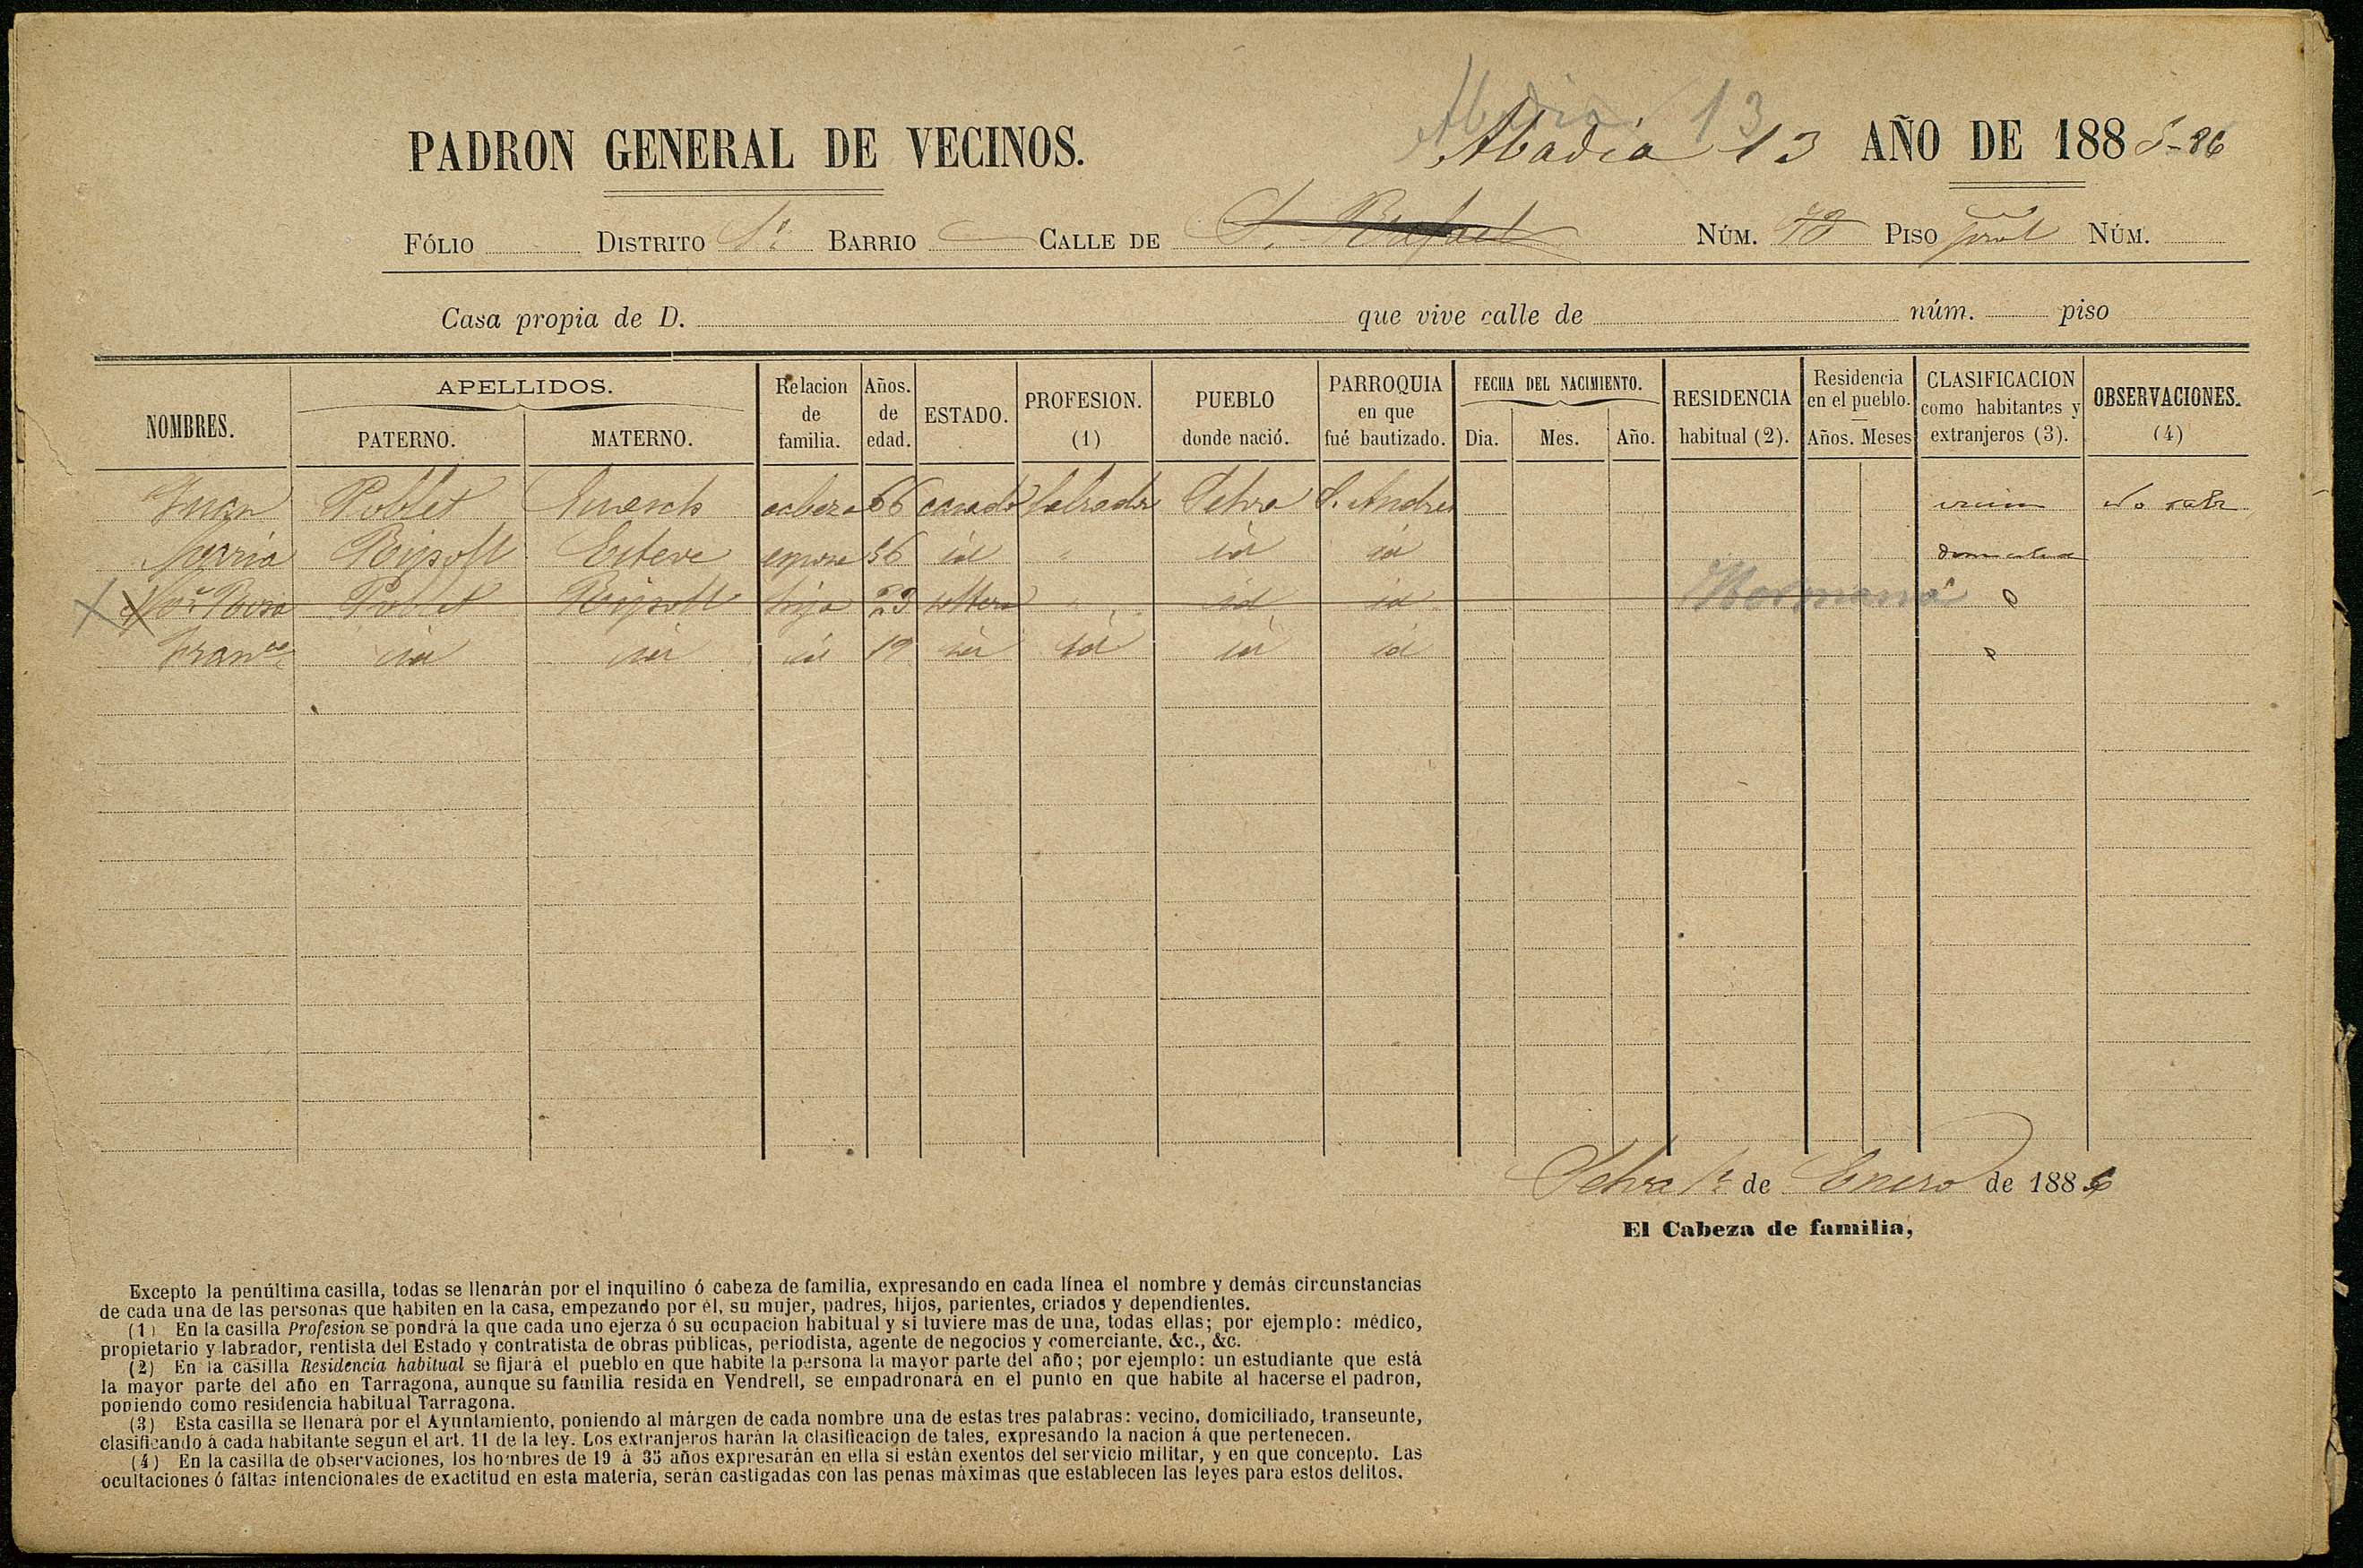 Abadia 13
PADRON GENERAL DE VECINOS. Abadia 13 AÑO DE 188 5-86
FÓLIO DISTRITO 1º BARRIO CALLE DE S. Rafael NÚM. PISO pral NÚM.
Casa propia de D. que vive calle de núm. piso
NOMBRES. APELLIDOS. PATERNO. MATERNO. Relacion de familia. Años. de edad. ESTADO. PROFESION. (1) PUEBLO donde nació. PARROQUIA en que fué bautizado. FECHA DEL NACIMIENTO. Dia. Mes. Año. RESIDENCIA habitual (2). Residencia en el pueblo. Años. Meses CLASIFICACION como habitantes y extranjeros (3). OBSERVACIONES. (4)
Juan Poblet Guasch cabeza 66 casado labrador Selva S. Andres vecino No sabe
Maria Ripoll Esteve esposa 56 id " id id
Mª Rosa Poblet Ripoll hija 23 soltera " id id Hermana
Franca id id id 19 id id id id
Selva 1º de Enero de 1886
El Cabeza de familia,
Excepto la penúltima casilla, todas se llenarán por el inquilino ó cabeza de familia, expresando en cada línea el nombre y demás circunstancias
de cada una de las personas que habiten en la casa, empezando por él, su mujer, padres, hijos, parientes, criados y dependientes.
(1) En la casilla Profesion se pondrá la que cada uno ejerza ó su ocupacion habitual y si tuviere mas de una, todas ellas; por ejemplo: médico,
propietario y labrador, rentista del Estado y contratista de obras públicas, periodista, agente de negocios y comerciante, &c., &c.
(2) En la casilla Residencia habitual se fijará el pueblo en que habite la persona la mayor parte del año; por ejemplo: un estudiante que está
la mayor parte del año en Tarragona, aunque su familia resida en Vendrell, se empadronará en el punto en que habite al hacerse el padron,
poniendo como residencia habitual Tarragona.
(3) Esta casilla se llenará por el Ayuntamiento, poniendo al márgen de cada nombre una de estas tres palabras: vecino, domiciliado, transeunte,
clasificando á cada habitante segun el art. 11 de la ley. Los extranjeros harán la clasificacion de tales, expresando la nacion á que pertenecen.
(4) En la casilla de observaciones, los hombres de 19 á 35 años expresarán en ella si están exentos del servicio militar, y en que concepto. Las
ocultaciones ó faltas intencionales de exactitud en esta materia, serán castigadas con las penas máximas que establecen las leyes para estos delitos.